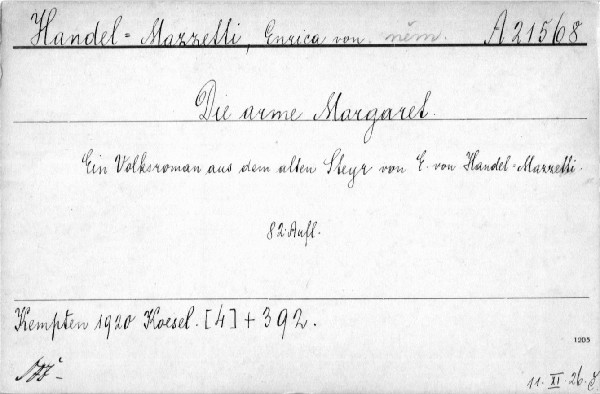 Handel-Mazzetti, Enrica von něm. A 21568
Die arme Margaret.
Ein Volksroman aus dem alten Steyr von E. von Handel-Mazzetti.
82. Aufl.
Kempten 1920 Koesel. [4] + 392.
1205
11. XI. 26.